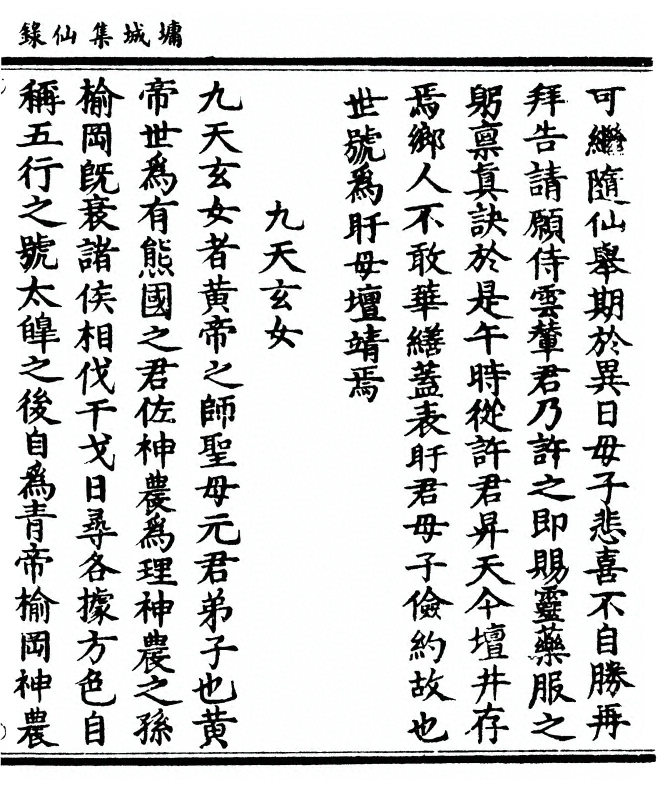 墉城集仙錄
可繼隨仙舉期於異日母子悲喜不自勝再
拜告請願侍雲輦君乃許之即賜靈藥服之
躬禀真訣於是午時從許君昇天今壇井存
焉鄉人不敢華繕蓋表盱君母子儉約故也
世號爲盱母壇靖焉
九天玄女
九天玄女者黄帝之師聖母元君弟子也黄
帝世爲有熊國之君佐神農爲理神農之孫
榆岡旣衰諸侯相伐干戈日尋各據方色自
稱五行之號太皥之後自爲青帝榆岡神農